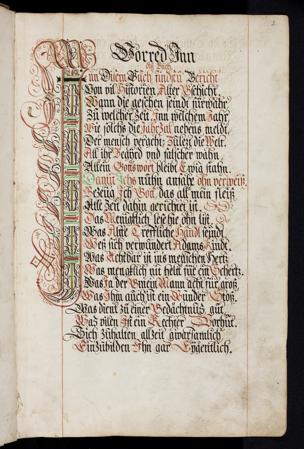 Vorred Inn
diß Buch
Inn Disem Buch finden Bericht
Von vil Historien Alter Geschicht
Wann die geschen seindt fürwahr
Zu welcher Zeit Inn welchem Jahr
Wie solchs die JahrZal nebens meldt
Der mensch veracht die Welt
All ihr Begird und falscher wahn
Allein Gottswort bleibt Ewig stahn
ohn verweiß
Ich Gott das all mein fleiß
Alle Zeit dahin gerichtet ist
Das Menigklich lese hie ohn list
Was Alte Treffliche Handl seindt
Weß sich verwundert Adams Kindt
Was Achtbar ist ins menschen hertz
Was menigklich nit helt für ein Schertz
Was Ja der Gmein Mann acht für groß
Was Ihm auch ist ein Wunder Stoß
Was dient zu einer Gedächtnuß gut
Was vilen Ist ein Rechter Vorhut
Sich Zuhalten allZeit gwarsamlich
EinZubilden Ihn gar Eygentlich